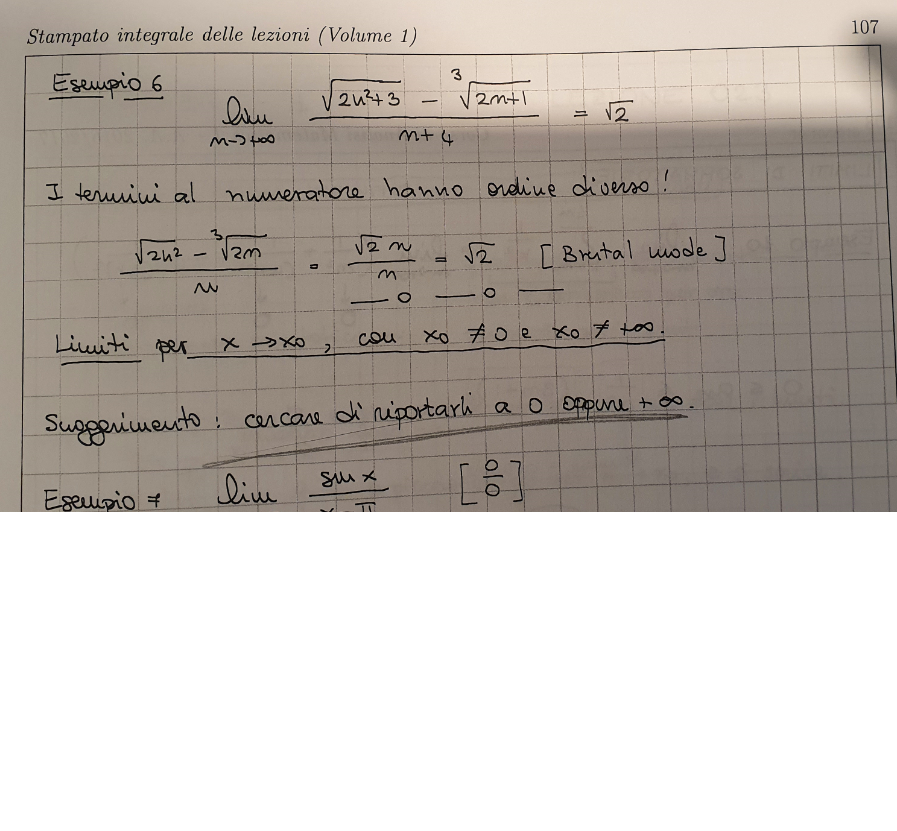 Stampato integrale delle lezioni (Volume 1) 107
Esempio 6
lim n→+∞ (√(2n²+3) − ³√(2n+1)) / (n+4) = √2
I termini al numeratore hanno ordine diverso!
(√2n² − ³√2n) / n = √2 n / n = √2 [Brutal mode]
— o — o —
Limiti per x → x0, con x0 ≠ 0 e x0 ≠ +∞.
Suggerimento: cercare di riportarli a 0 oppure +∞.
Esempio 7 lim sin x / [0/0]